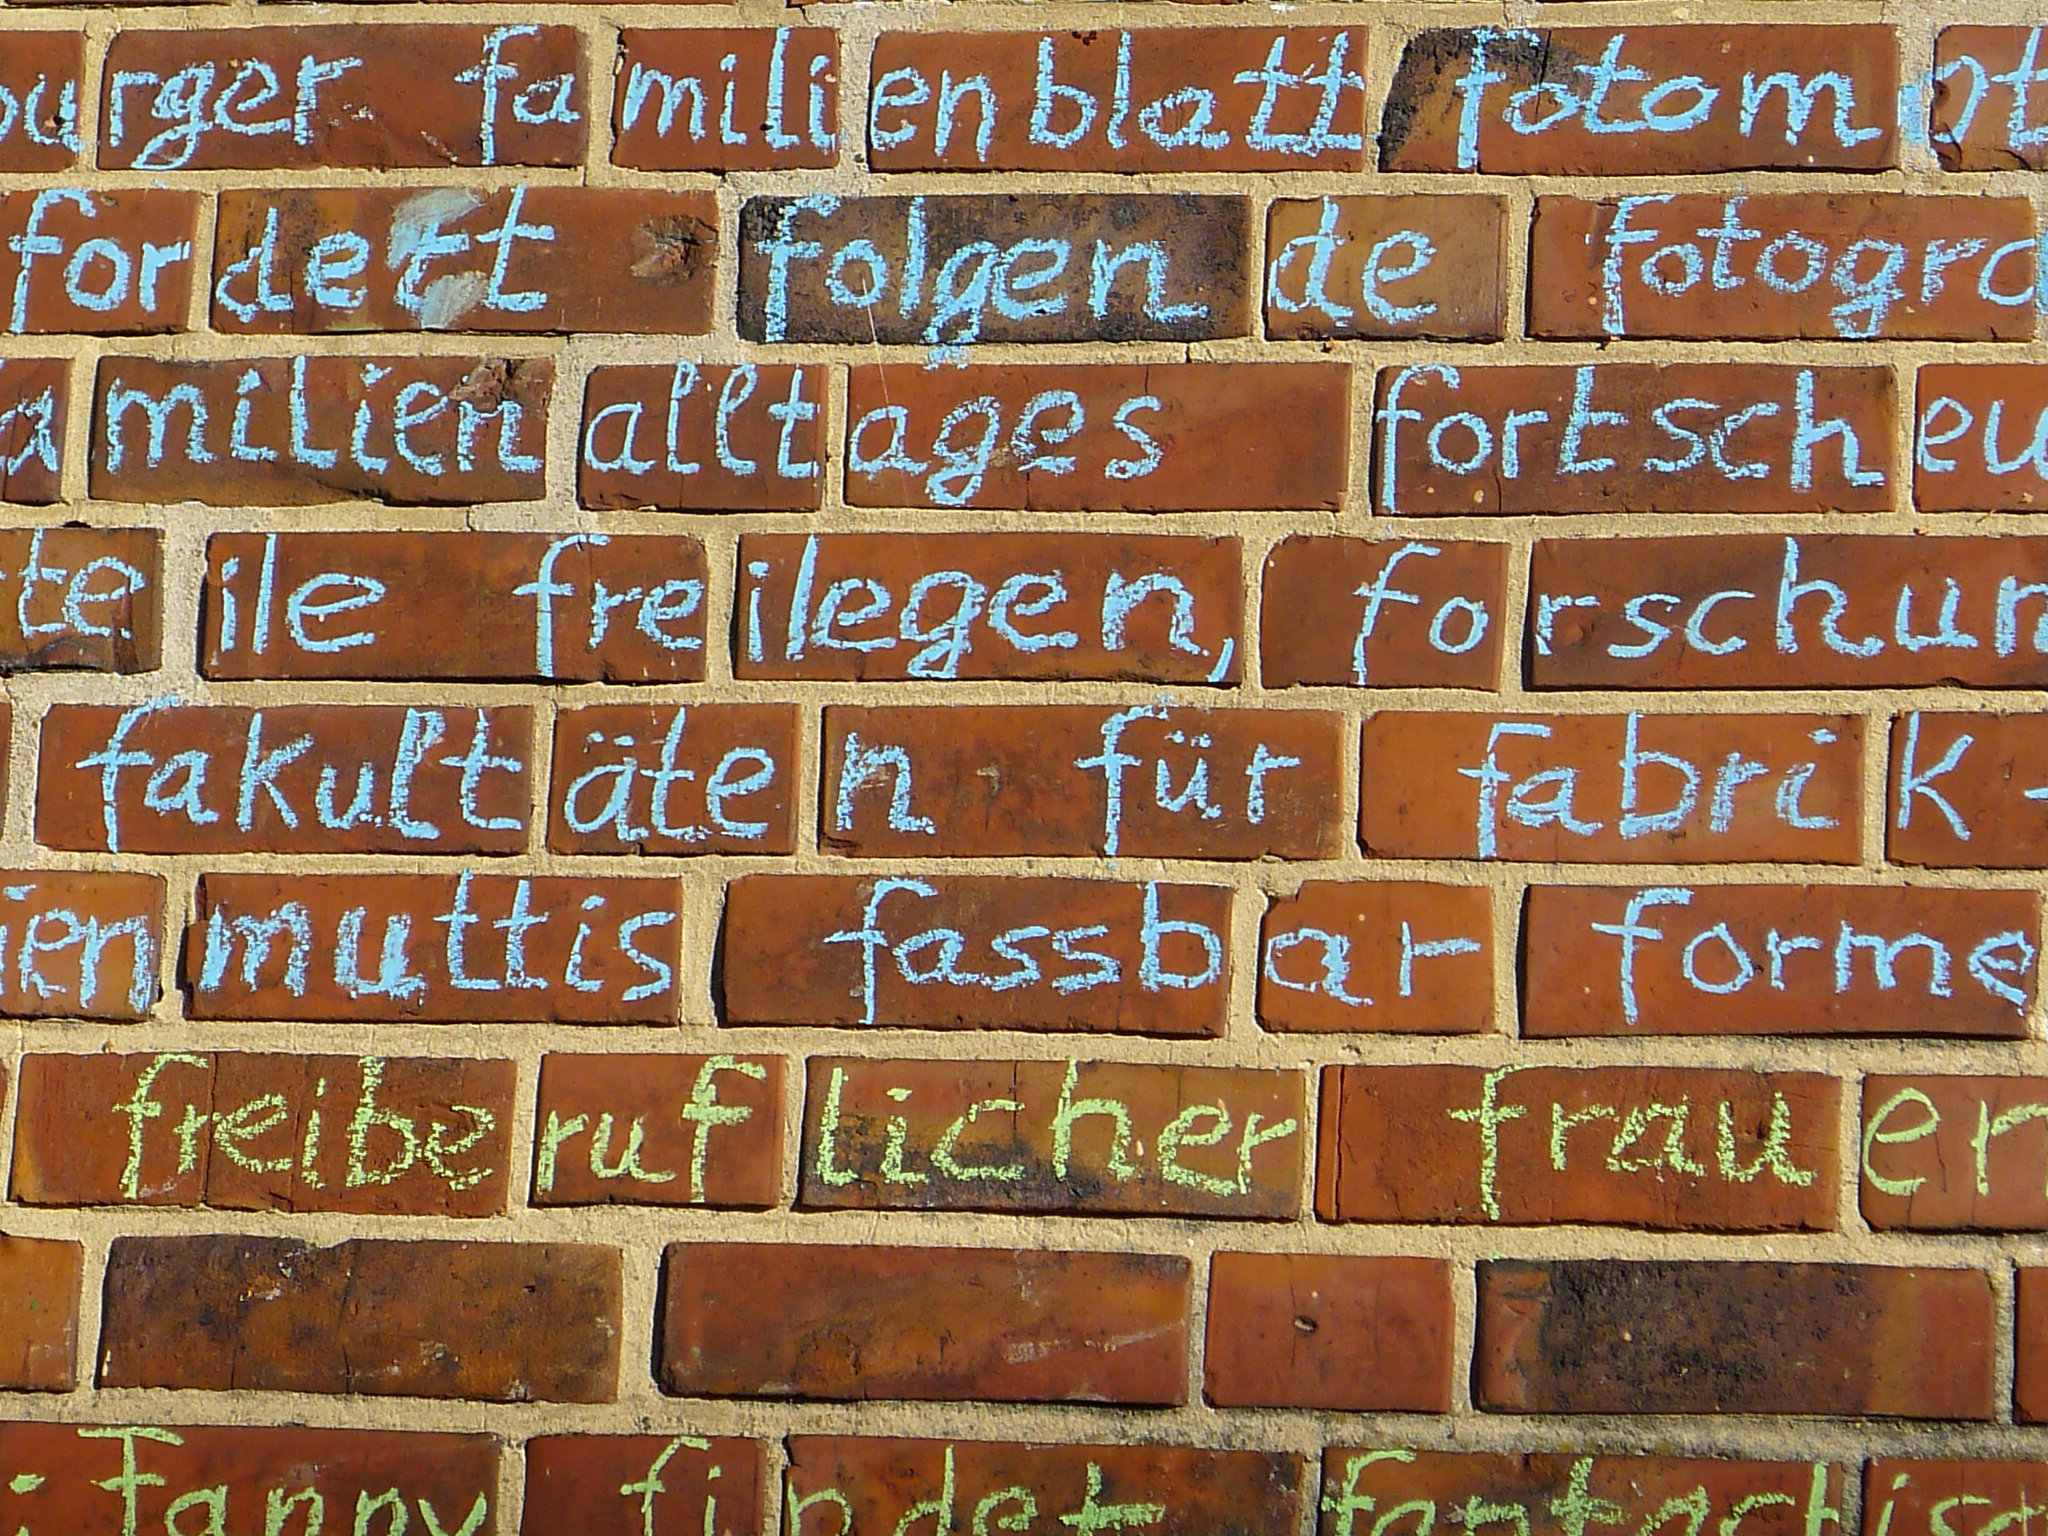 urger familienblatt fotom nt
fordert folgende fotogra
amilienalltages fortscheu
teile freilegen, forschun
fakultäten für fabrik-
ienmuttis fassbar forme
freiberuflicher frauen
: Fanny findet fantastisc